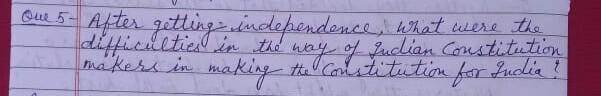 Que 5- After getting independence, what were the
difficulties in the way of Indian Constitution
makers in making the Constitution for India?